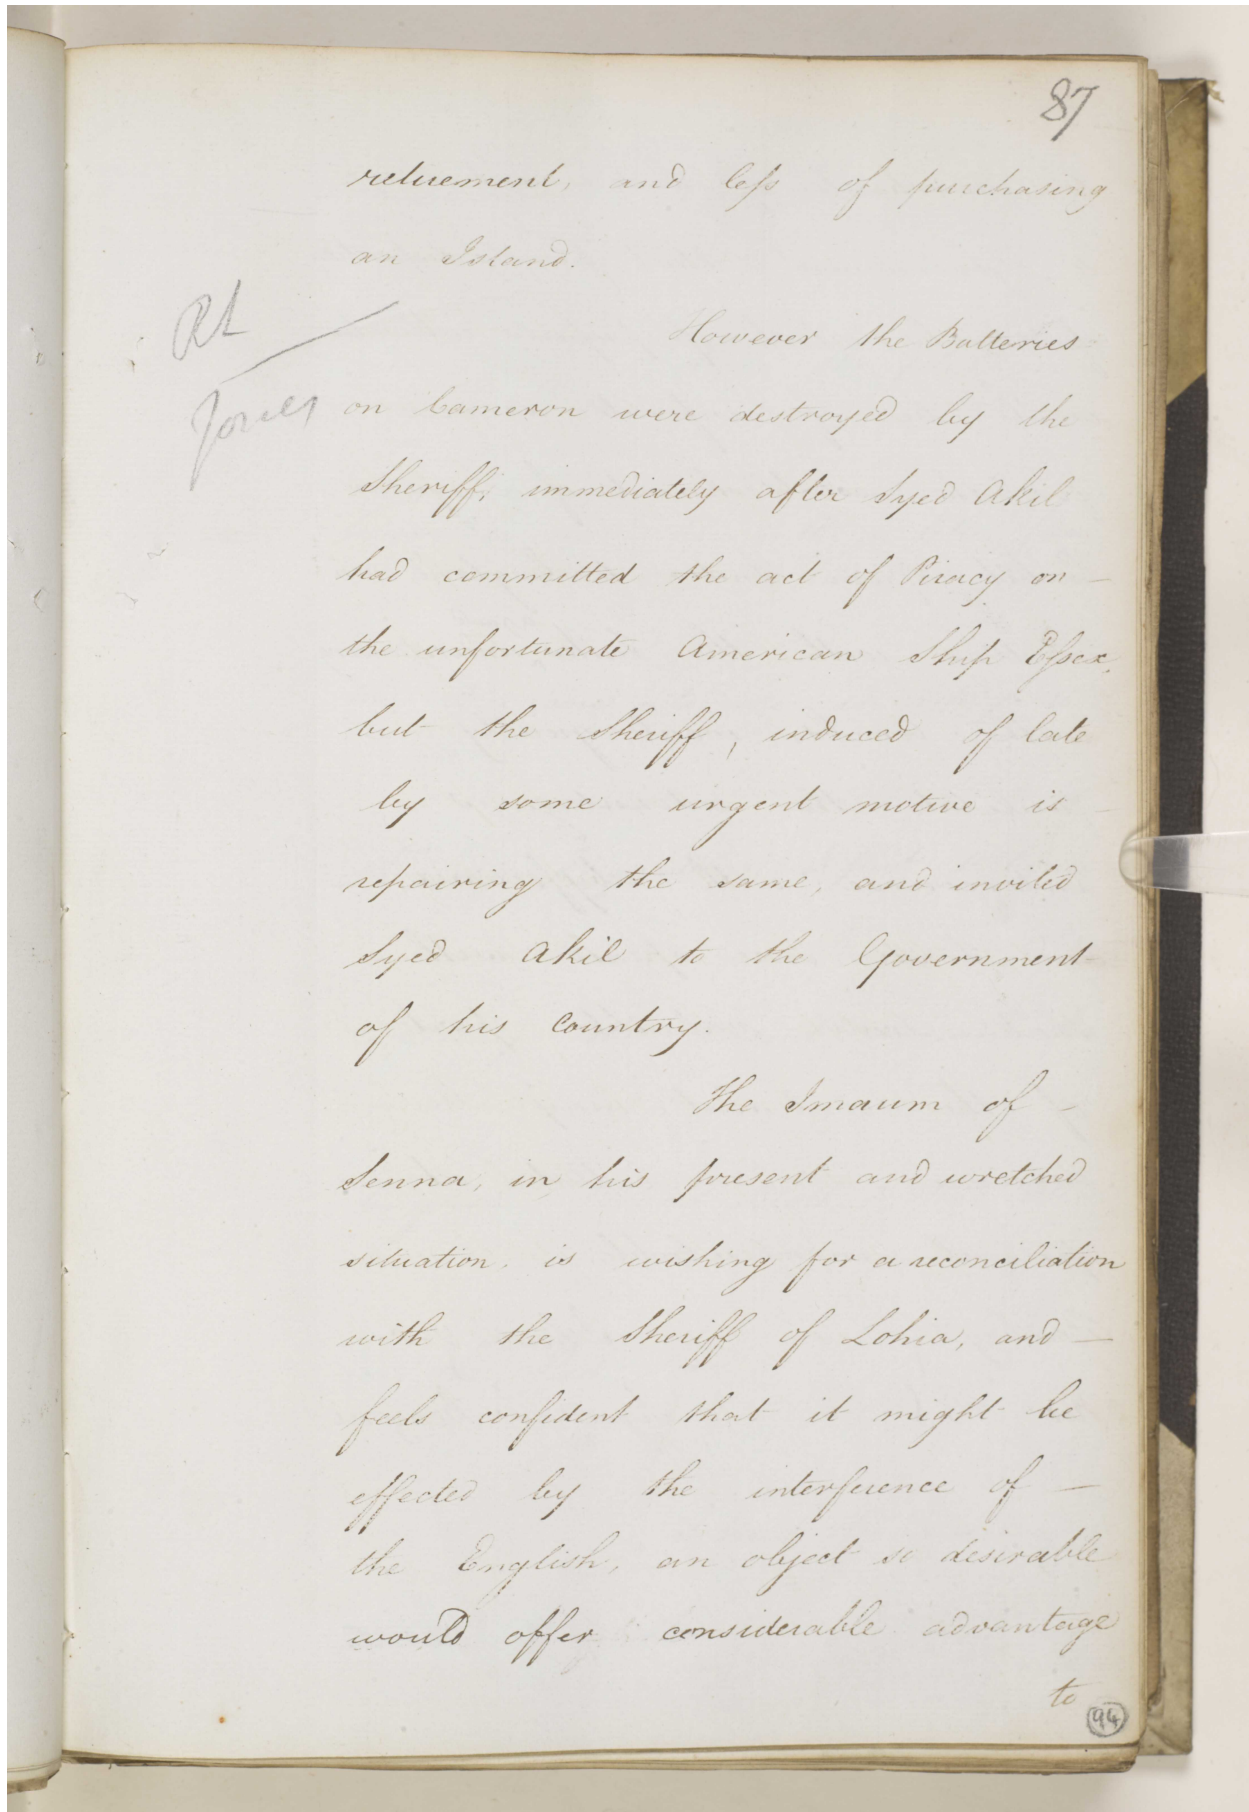 87
retirement, and less of purchasing
an Island.
However the Batteries
on Cameron were destroyed by the
Sheriff, immediately after Syed Akil
had committed the act of Piracy on -
the unfortunate American Ship Essex,
but the Sheriff, induced of late
by some urgent motive is -
repairing the same, and invited
Syed Akil to the Government
of his Country.
The Imaum of -
Senna, in his present and wretched
situation. is wishing for a reconciliation
with the Sheriff of Lohia, and -
feels confident that it might be
effected by the interference of -
the English, an object so desirable
would offer considerable advantage
to
94